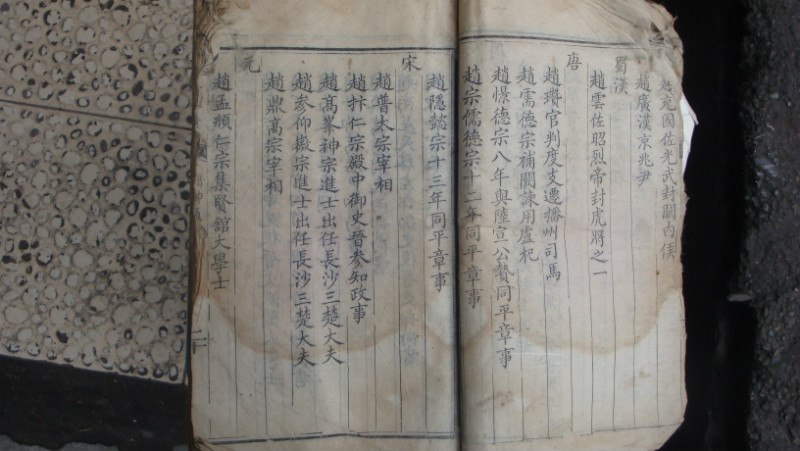 趙充國佐光武封關內侯
趙廣漢京兆尹
蜀漢
趙雲佐昭烈帝封虎將之一
唐
趙瓚官判度支遷播州司馬
趙需德宗補闕諫用盧杞
趙憬德宗八年與陸宣公贄同平章事
趙宗儒德宗十二年同平章事
趙隐懿宗十三年同平章事
宋
趙普太宗宰相
趙抃仁宗殿中御史晉參知政事
趙髙峯神宗進士出任長沙三楚大夫
趙参仰徽宗進士出任長沙三楚大夫
趙鼎高宗宰相
元
趙孟頫仁宗集賢館大學士